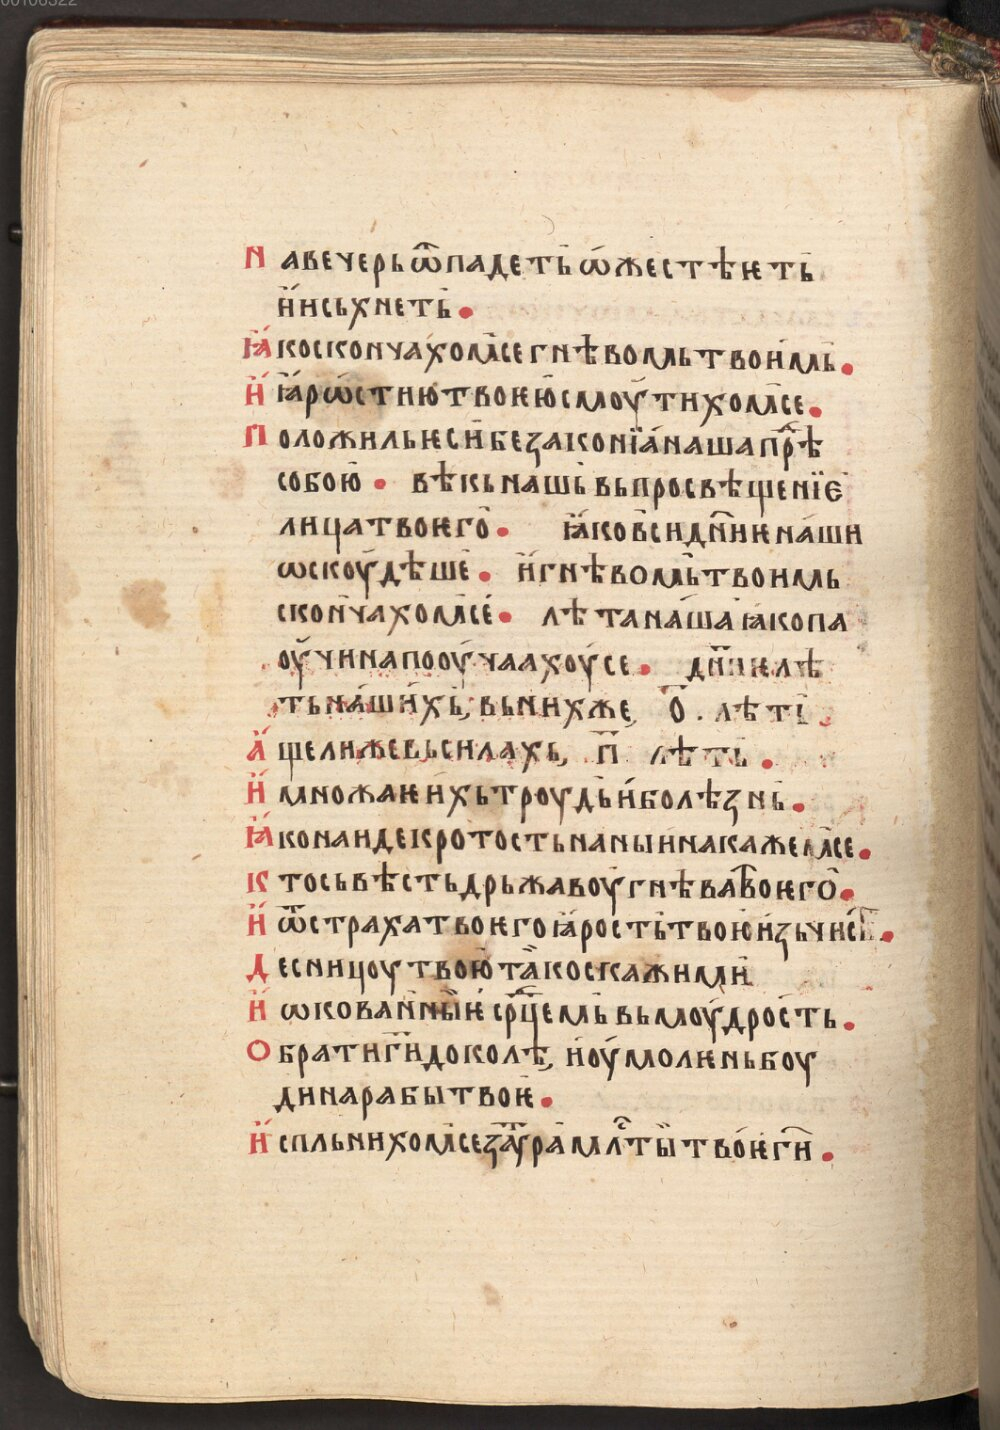 00106322
На вечерь ѿпадеть ѡжестѣѥть
и исьхнеть.
Ꙗко скончахом̾се гнѣвомь твоимь.
И ꙗрѡстию твоѥю смоутихом̾се.
Положиль ѥси беꙁаконїа наша прⷣѣ
собою. вѣкь нашь вь просвѣщенїе
лица твоѥго. ꙗко вси дн҃иѥ наши
ѡскоудѣше. и гнѣвомь твоимь
скончахом̾се. лѣта наша ꙗко па
оучина пооучаахоусе. дн҃иѥ лѣ
ть нашихь, вь нихже, о҃. лѣть.
Аще ли же вь силахь, п҃ лѣть.
И множаѥ ихь троудь и болѣꙁнь.
Ꙗко наиде кротость на ны и накажем̾се.
Кто сьвѣсть дрьжавоу гнѣва твоѥго.
И ѿ страха твоѥго ꙗрость твою иꙁьчисⷭ҇.
Десницоу твою тако скажи ми
И ѡкованныѥ срⷣцемь вь моудрость.
Обрати г҃и доколѣ, и оумолѥнь боу
ди на рабы твоѥ.
Испльнихом̾се ꙁаⷹтра млⷭ҇ти твоѥ г҃и.